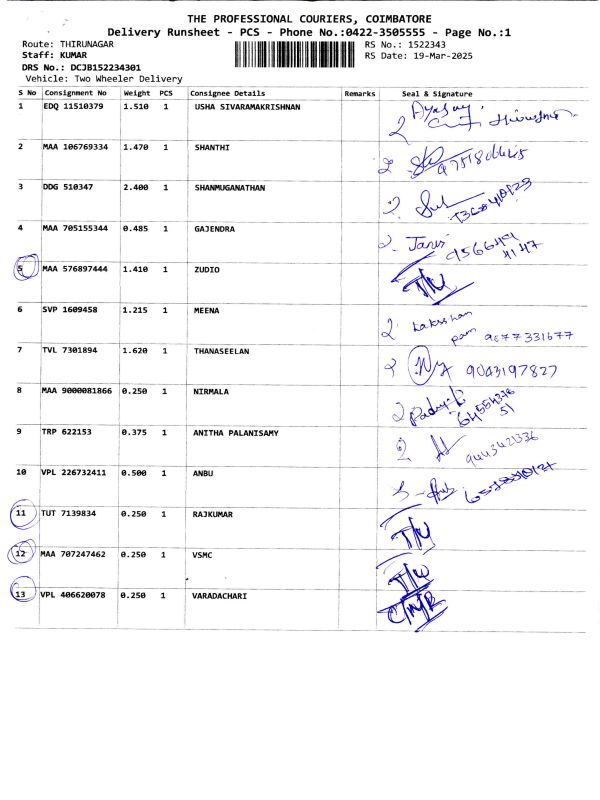 THE PROFESSIONAL COURIERS, COIMBATORE
Delivery Runsheet - PCS - Phone No.:0422-3505555 - Page No.:1
Route: THIRUNAGAR RS No.: 1522343
Staff: KUMAR RS Date: 19-Mar-2025
DRS No.: DCJB152234301
Vehicle: Two Wheeler Delivery
S No Consignment No Weight PCS Consignee Details Remarks Seal & Signature
1 EDQ 11510379 1.510 1 USHA SIVARAMAKRISHNAN
2 MAA 106769334 1.470 1 SHANTHI
3 DDG 510347 2.400 1 SHANMUGANATHAN
4 MAA 705155344 0.485 1 GAJENDRA
5 MAA 576897444 1.410 1 ZUDIO
6 SVP 1609458 1.215 1 MEENA
9077331677
7 TVL 7301894 1.620 1 THANASEELAN 9003197827
8 MAA 9000081866 0.250 1 NIRMALA
9 TRP 622153 0.375 1 ANITHA PALANISAMY 9443421336
10 VPL 226732411 0.500 1 ANBU
11 TUT 7139834 0.250 1 RAJKUMAR
12 MAA 707247462 0.250 1 VSMC
13 VPL 406620078 0.250 1 VARADACHARI